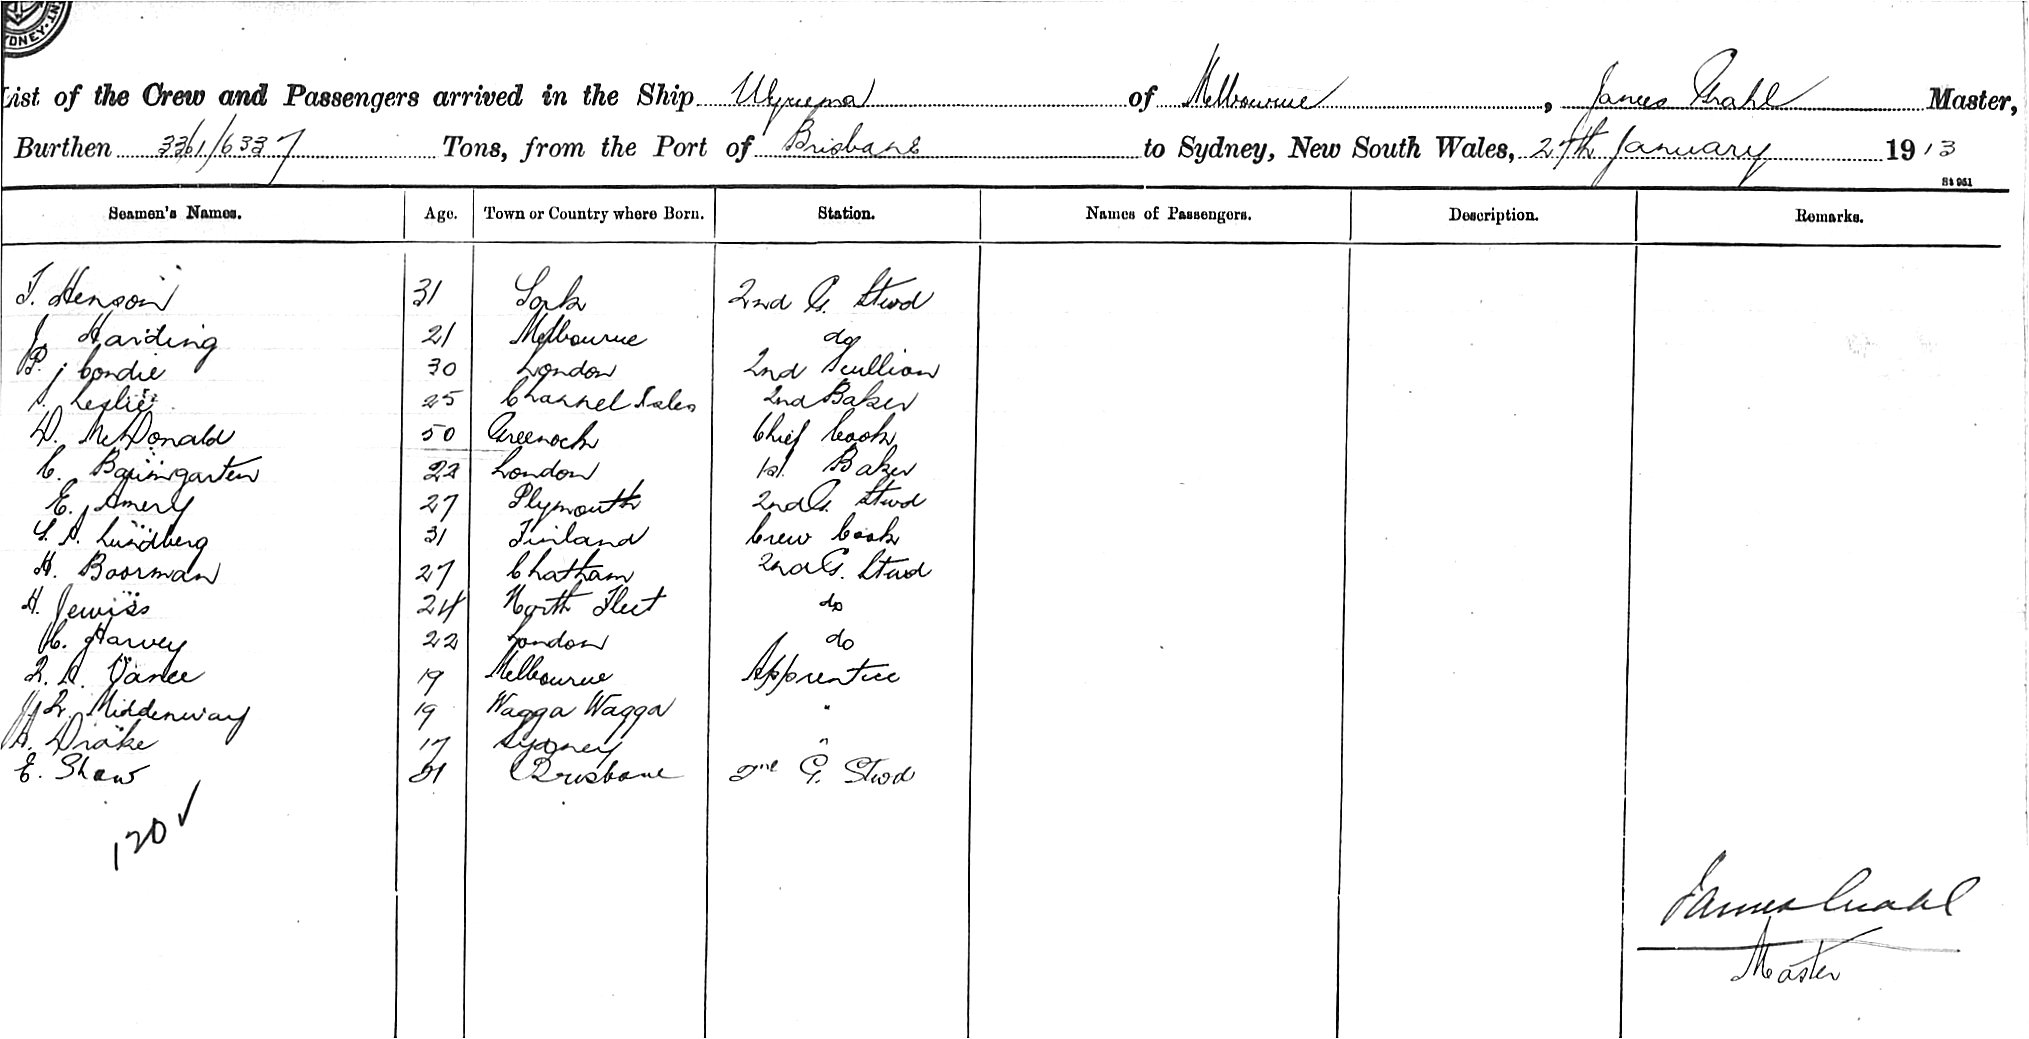 YDNEY. INT
List of the Crew and Passengers arrived in the Ship Wyreema of Melbourne, James Grahl Master,
Burthen 3361/6337 Tons, from the Port of Brisbane to Sydney, New South Wales, 27th January 1913
St 951
Seamen's Names. Age. Town or Country where Born. Station. Names of Passengers. Description. Remarks.
T. Henson 31 2nd G. Stwd
J. Harding 21 Melbourne do
P. Condie 30 London 2nd Scullion
Leslie 25 Channel Isles 2nd Baker
D. McDonald 50 Greenock Chief Cook
C. Baumgarten 22 London 1st Baker
E. Amery 27 Plymouth 2nd G. Stwd
Lundberg 31 Finland Crew Cook
H. Boorman 27 Chatham 2nd G. Stwd
H. Jewiss 24 North Fleet do
C. Harvey 22 London do
R. A. Vance 19 Melbourne Apprentice
R. Middenway 19 Wagga Wagga "
A. Drake 17 Sydney "
E. Shaw 21 Brisbane 2nd G. Stwd
120 ✓
James Grahl
Master